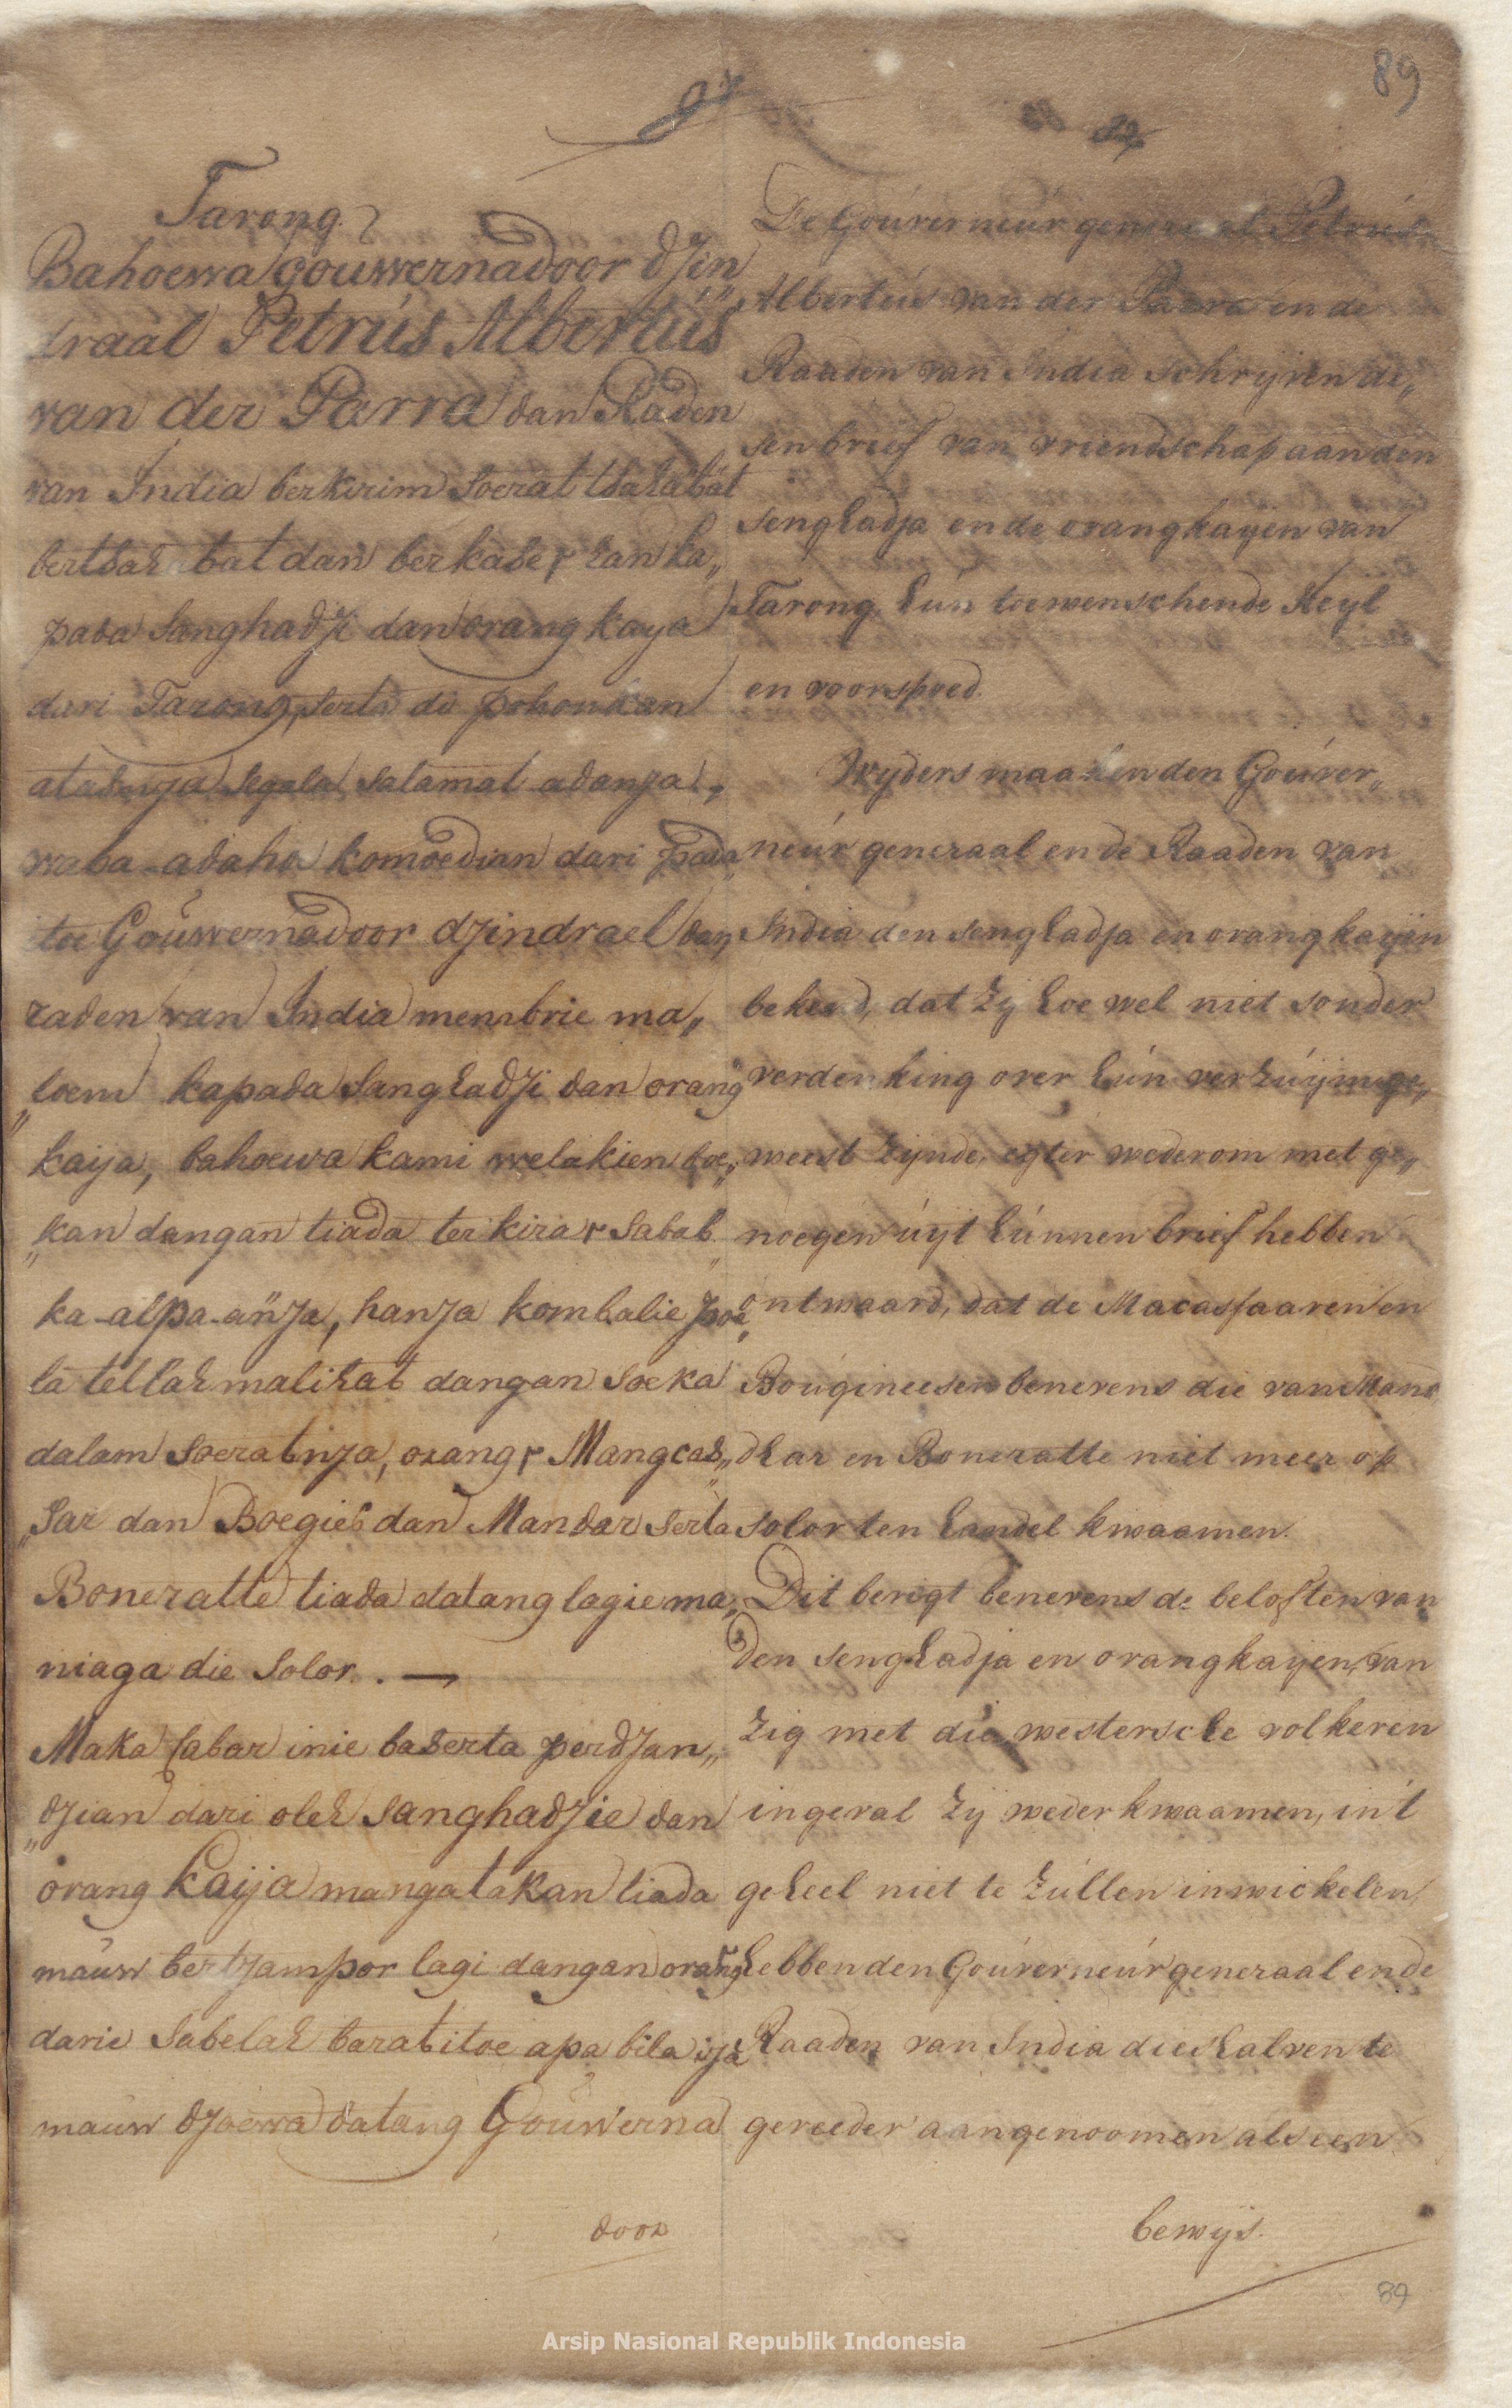 89
Tarong.
Bahoewa gouwernadoor dJin„
draal Petrús Albertús
van der Parra dan Raden
van India berkirim soerat tsahabat
bertsahabat dan berkase r han ka„
pada Sanghadji dan orang kaya
dari Tarong, serta di pohonkan
atasnja segala salamat adanja.
waba-adaho komoedian dari pada
itoe Gouwernadoor djindrael dan
raden van India membrie ma„
„loem kapada Sanghadji dan orang
kaija, bahoewa kami welakien boe„
„kan dangan tiada terkira r sabab
ka-alpa-anja, hanja kombalie poe„
la tellah malihat dangan soeka
dalam soeratnja, orang r Mangcas„
„sar dan Boegies dan Mandar serta
Boneratte tiada datang lagie ma„
niaga die Solor. . —
Maka cabar inie baserta perdjan„
„djian dari oleh sanghadjie dan
orang kaija mangatakan tiada
mauw bertjampor lagi dangan orang
darie sabelah barat itoe apa bila ija
mauw djoewa datang Gouwerna
door
De Goúverneúr generaal Petrús
Albertús van der Parra en de
Raaden van India schryven de„
sen brief van vriendschap aan den
senghadja en de orangkayen van
Tarong hún toewenschende Heyl
en voorspoed.
Wyders maaken den Goúver„
neúr generaal en de Raaden van
India den senghadja en orangkayen
bekend, dat zy hoe wel niet sonder
verdenking over hún verzúijm ge„
weest zijnde, egter wederom met ge„
noegen úijt húnnen brief hebben
ontwaard, dat de Macassaaren en
Boúgineesen benevens die van Man„
dhar en Boneratte niet meer op
solor ten handel kwaamen.
Dit berigt benevens de beloften van
den senghadja en orangkayen, van
zig met die westersche volkeren
ingeval zij weder kwaamen, in't
geheel niet te zúllen inwickelen,
hebben den Goúverneúr generaal en de
Raaden van India dies halven te
gereeder aangenoomen als een
bewijs.
89
Arsip Nasional Republik Indonesia